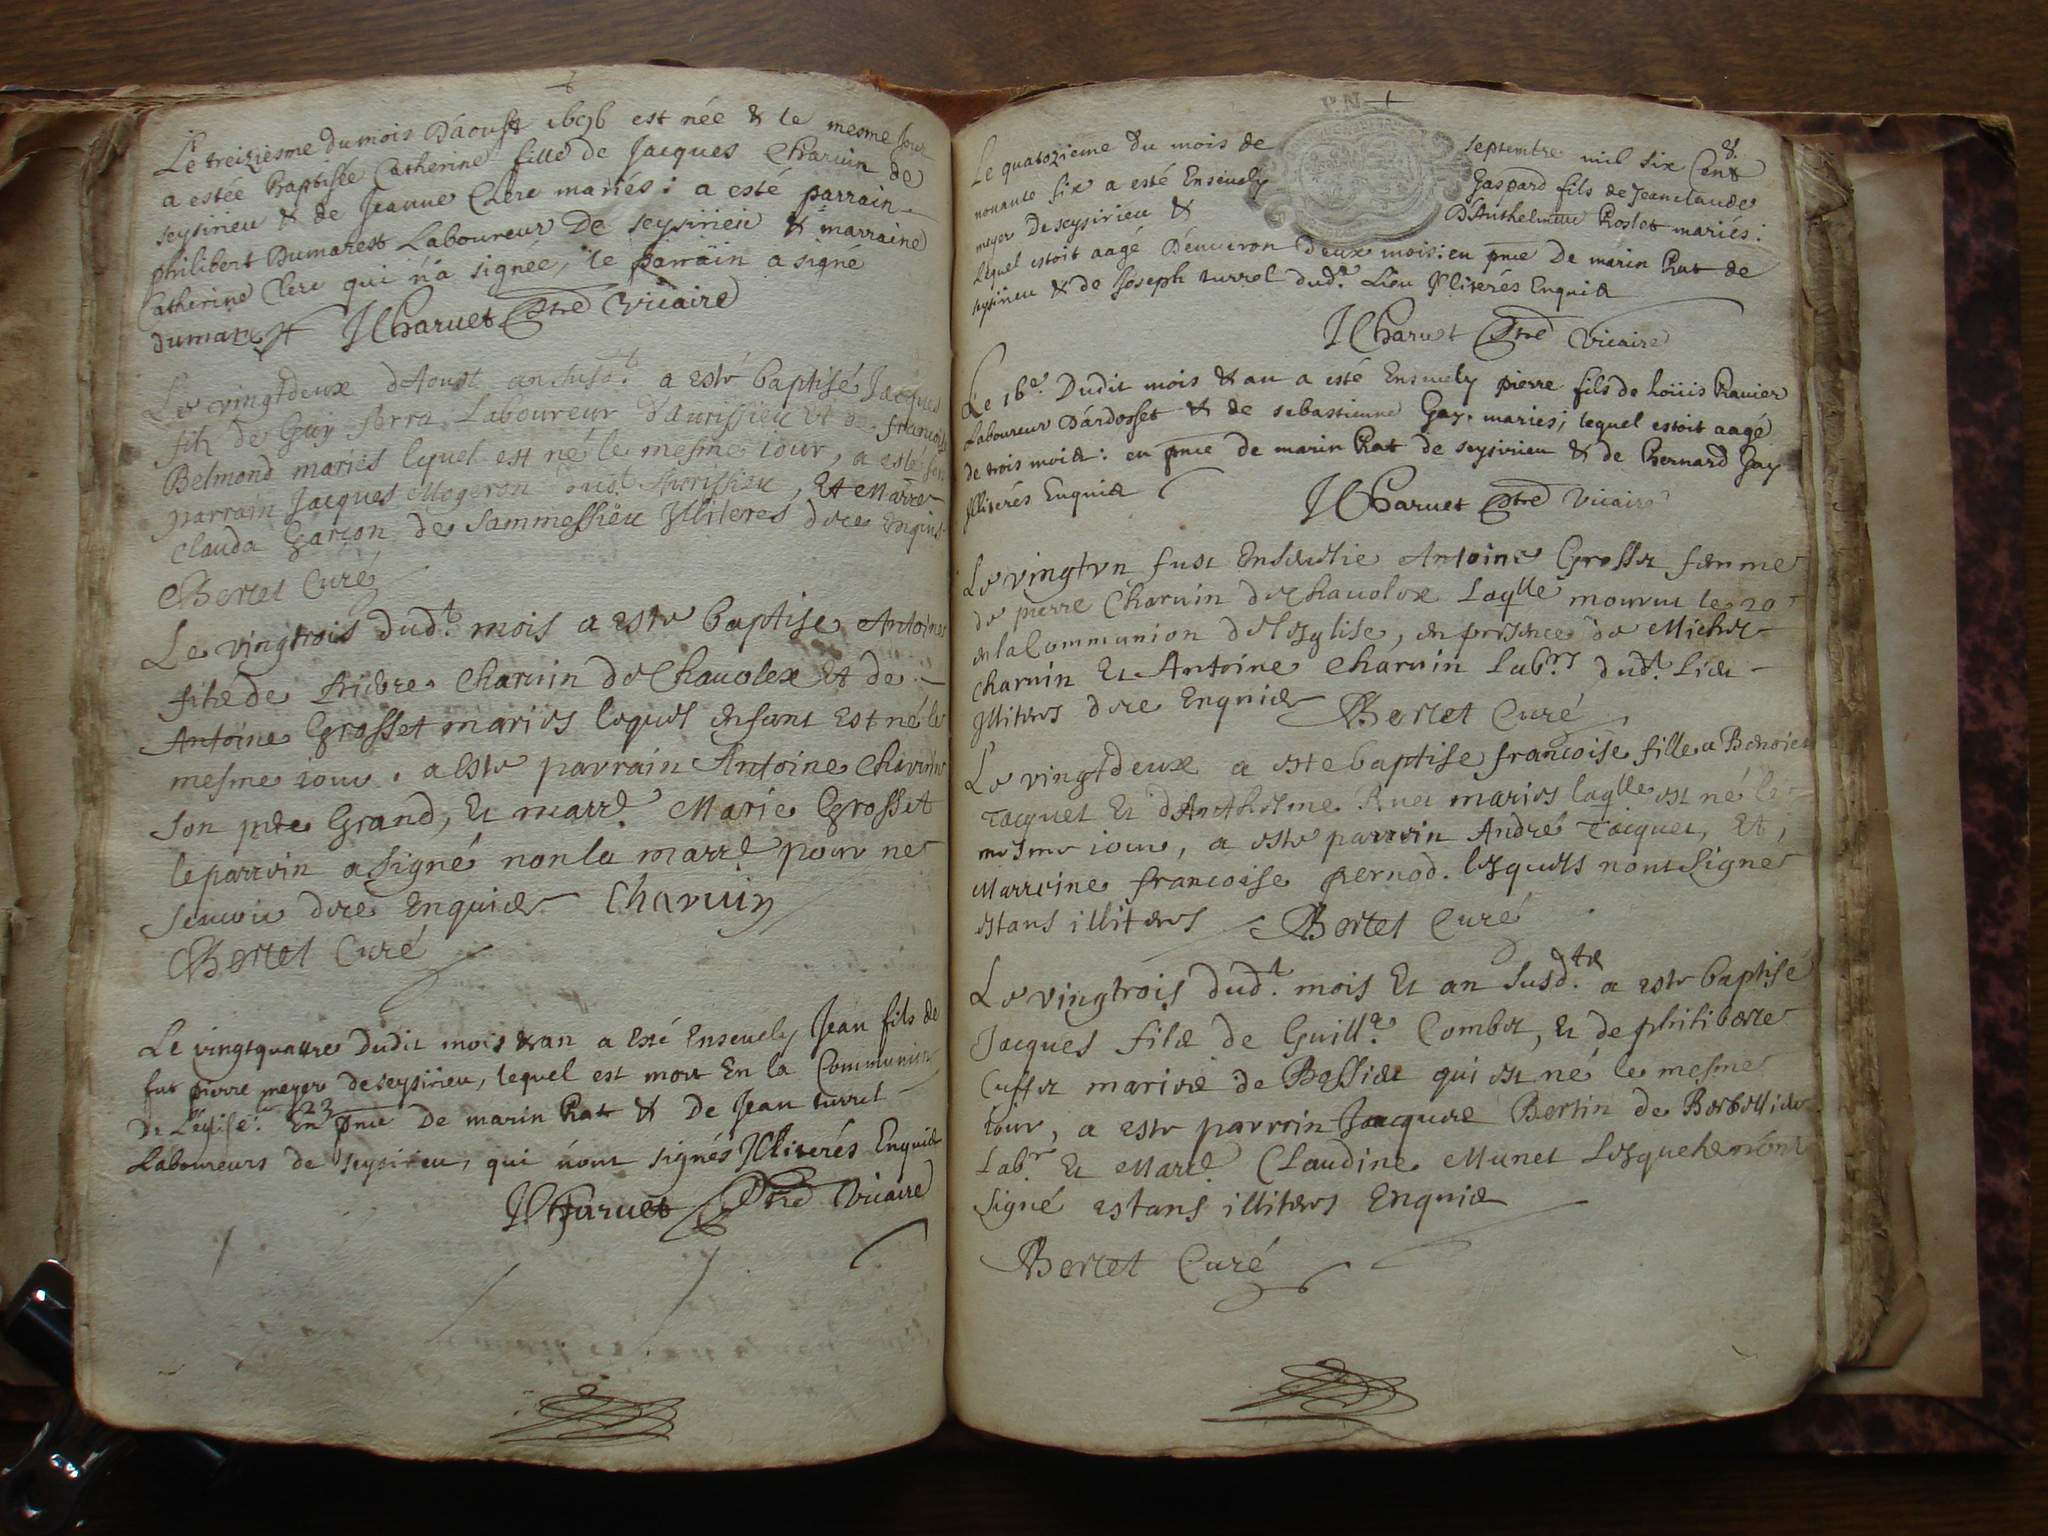 Le treiziesme du mois D'aoust 1696 est née & le mesme Jour
a estée Baptisée Catherine fille de Jacques Charuin de
seysirieu & de Jeanne Clere mariés: a esté parrain
philibert Dumarest Laboureur De seysirieu & marraine
Catherine Clere qui n'a signée, le parrain a signé
dumarest JCharuet Ptre Vicaire
Le vingtdeux d'Aoust an susd.t a este baptisé Jacques
fils de Guy Laboureur d'Aurissieu et de francoise
Belmond mariés lequel est né le mesme iour, a esté son
parrain Jacques Mogeron dud.t Aurissieu, Et Marre
Clauda Garçon de Sammessieu Illiteres de ce enquis
Bertet Curé
Le vingtrois dud.t mois a este baptise Antoine
fils de Charuin de Chauolex et de
Antoine Grosset maries lequel enfant est né le
mesme iour, a este parrain Antoine Charuin
son pere Grand, et marr.e Marie Grosset
le parrain a signé non la marr.e pour ne
scauoir de ce Enquise Charuin
Bertet Curé
Le vingtquattre dudit mois & an a Esté Enseuely Jean fils de
fut pierre meyer de seysirieu, lequel est mort En la Communion
De L'eglise: le 23 En pnce De marin Rat & De Jean turrel
Laboureurs de seysirieu, qui n'ont signés Illiterés Enquis
JCharuet Ptre Vicaire
P.N.
8.
Le quatozieme du mois de septembre mil six Cent
nonante six a esté Enseuely Gaspard fils de Jeanclaude
meyer de seysirieu & D'Anthelmine Roslet mariés:
lequel estoit aagé D'enuiron deux mois: en pnce De marin Rat de
seysirieu & de Joseph turrel dud.t Lieu Illiterés Enquis
JCharuet Ptre Vicaire
Le 16e. Dudit mois & an a esté Enseuely pierre fils de Loüis Rauier
Laboureur D'ardosset & de sebastienne Gay. mariés; lequel estoit aagé
de trois mois: en pnce de marin Rat de seysirieu & de Bernard Gay
Illiterés Enquis
JCharuet Ptre Vicaire
Le vingtvn fust Enseuelie Antoine Grosset femme
de pierre Charuin de Chauolex laqlle mourut le 20
en la Communion de l'eglise, en presence de Michel
Charuin Et Antoine Charuin lab.rs dud.t lieu
Illiteres de ce Enquis Bertet Curé
Le vingtdeux a este baptise francoise fille a Benoict
Tacquet Et d'Anthelme maries laqlle est né le
mesme iour, a este parrain André Tacquet, Et
Marreine francoise pernod. lesquels n'ont signe
estans illiteres Bertet Curé
Le vingtrois dud.t mois Et an susd.ts a este baptisé
Jacques fils de Guill.e Combet, Et de philiberte
Cusset maries de Bessieu qui est né le mesme
iour, a este parrain Jacques Bertin de
lab.r Et Marr.e Claudine Munet lesquels n'ont
signé estans illiteres Enquis
Bertet Curé